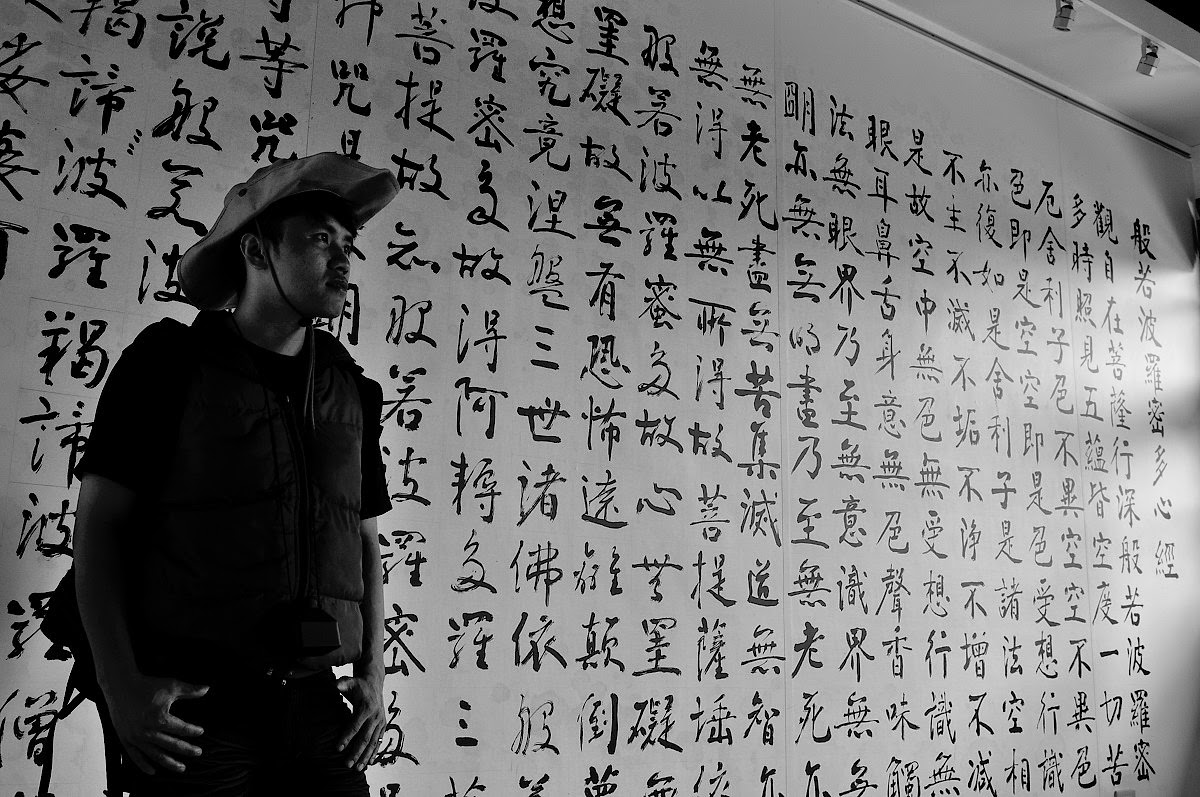 般若波羅密多心經
觀自在菩薩行深般若波羅密
多時照見五蘊皆空度一切苦
厄舍利子色不異空空不異色
色即是空空即是色受想行識
亦復如是舍利子是諸法空相
不生不滅不垢不淨不增不減
是故空中無色無受想行識無
眼耳鼻舌身意無色聲香味觸
法無眼界乃至無意識界無無
明亦無無明盡乃至無老死亦
無老死盡無苦集滅道無智亦
無得以無所得故菩提薩埵依
般若波羅蜜多故心無罣礙無
罣礙故無有恐怖遠離顛倒夢
想究竟涅槃三世諸佛依般若
波羅密多故得阿耨多羅三藐
菩提故知般若波羅密多是
神咒是明
等等咒
說般若波
揭諦〻波羅羯諦波羅僧